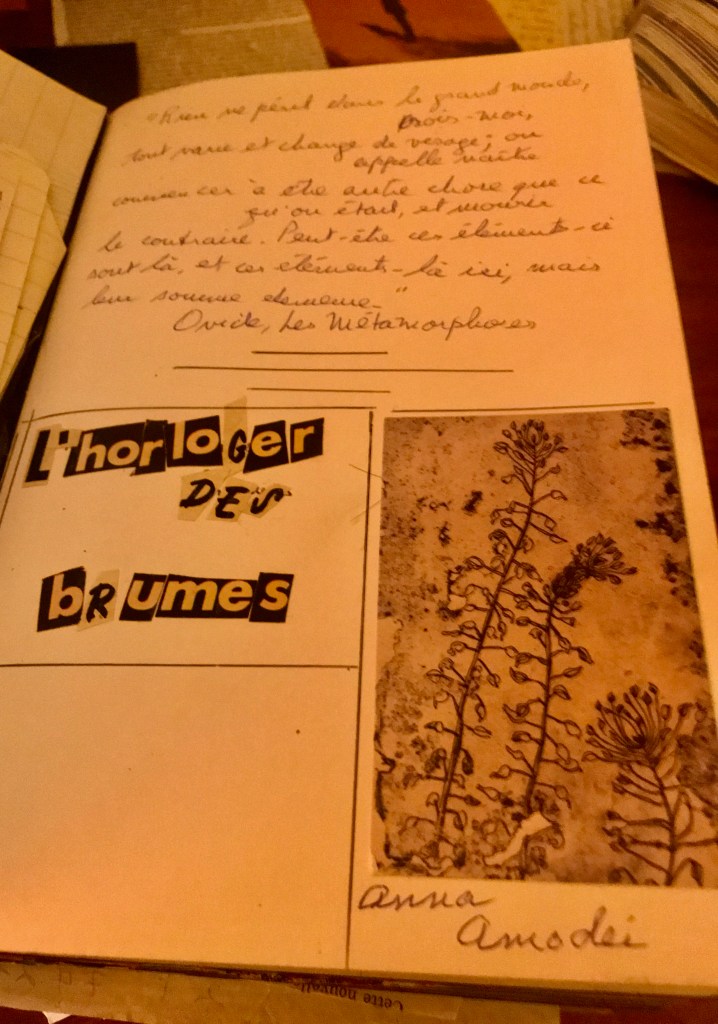 "Rien ne périt dans le grand monde,
crois-moi,
tout varie et change de visage ; on
appelle naître
commencer à être autre chose que ce
qu'on était, et mourir
le contraire. Peut-être ces éléments-ci
sont là, et ces éléments-là ici, mais
leur somme demeure."
Ovide, Les Métamorphoses
l'horloGer
DES
bRumes
anna
Amodei
Cette nouvell